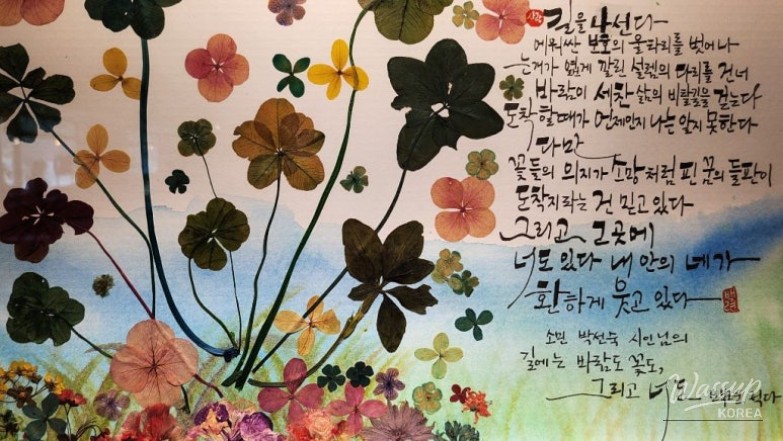 길을 나선다
에워싼 보호의 울타리를 벗어나
눈가가 옅게 깔린 설렘의 다리를 건너
바람이 세찬 삶의 비탈길을 걷는다
도착할 때가 언제인지 나는 알지 못한다
다만
꽃들의 의지가 소망처럼 핀 꿈의 들판이
도착지라는 건 믿고 있다
그리고 그곳에
너도 있다 내 안의 네가
환하게 웃고 있다
소민 박전숙 시인님의
길에는 바람도 꽃도,
그리고 너도
Wassup
KOREA